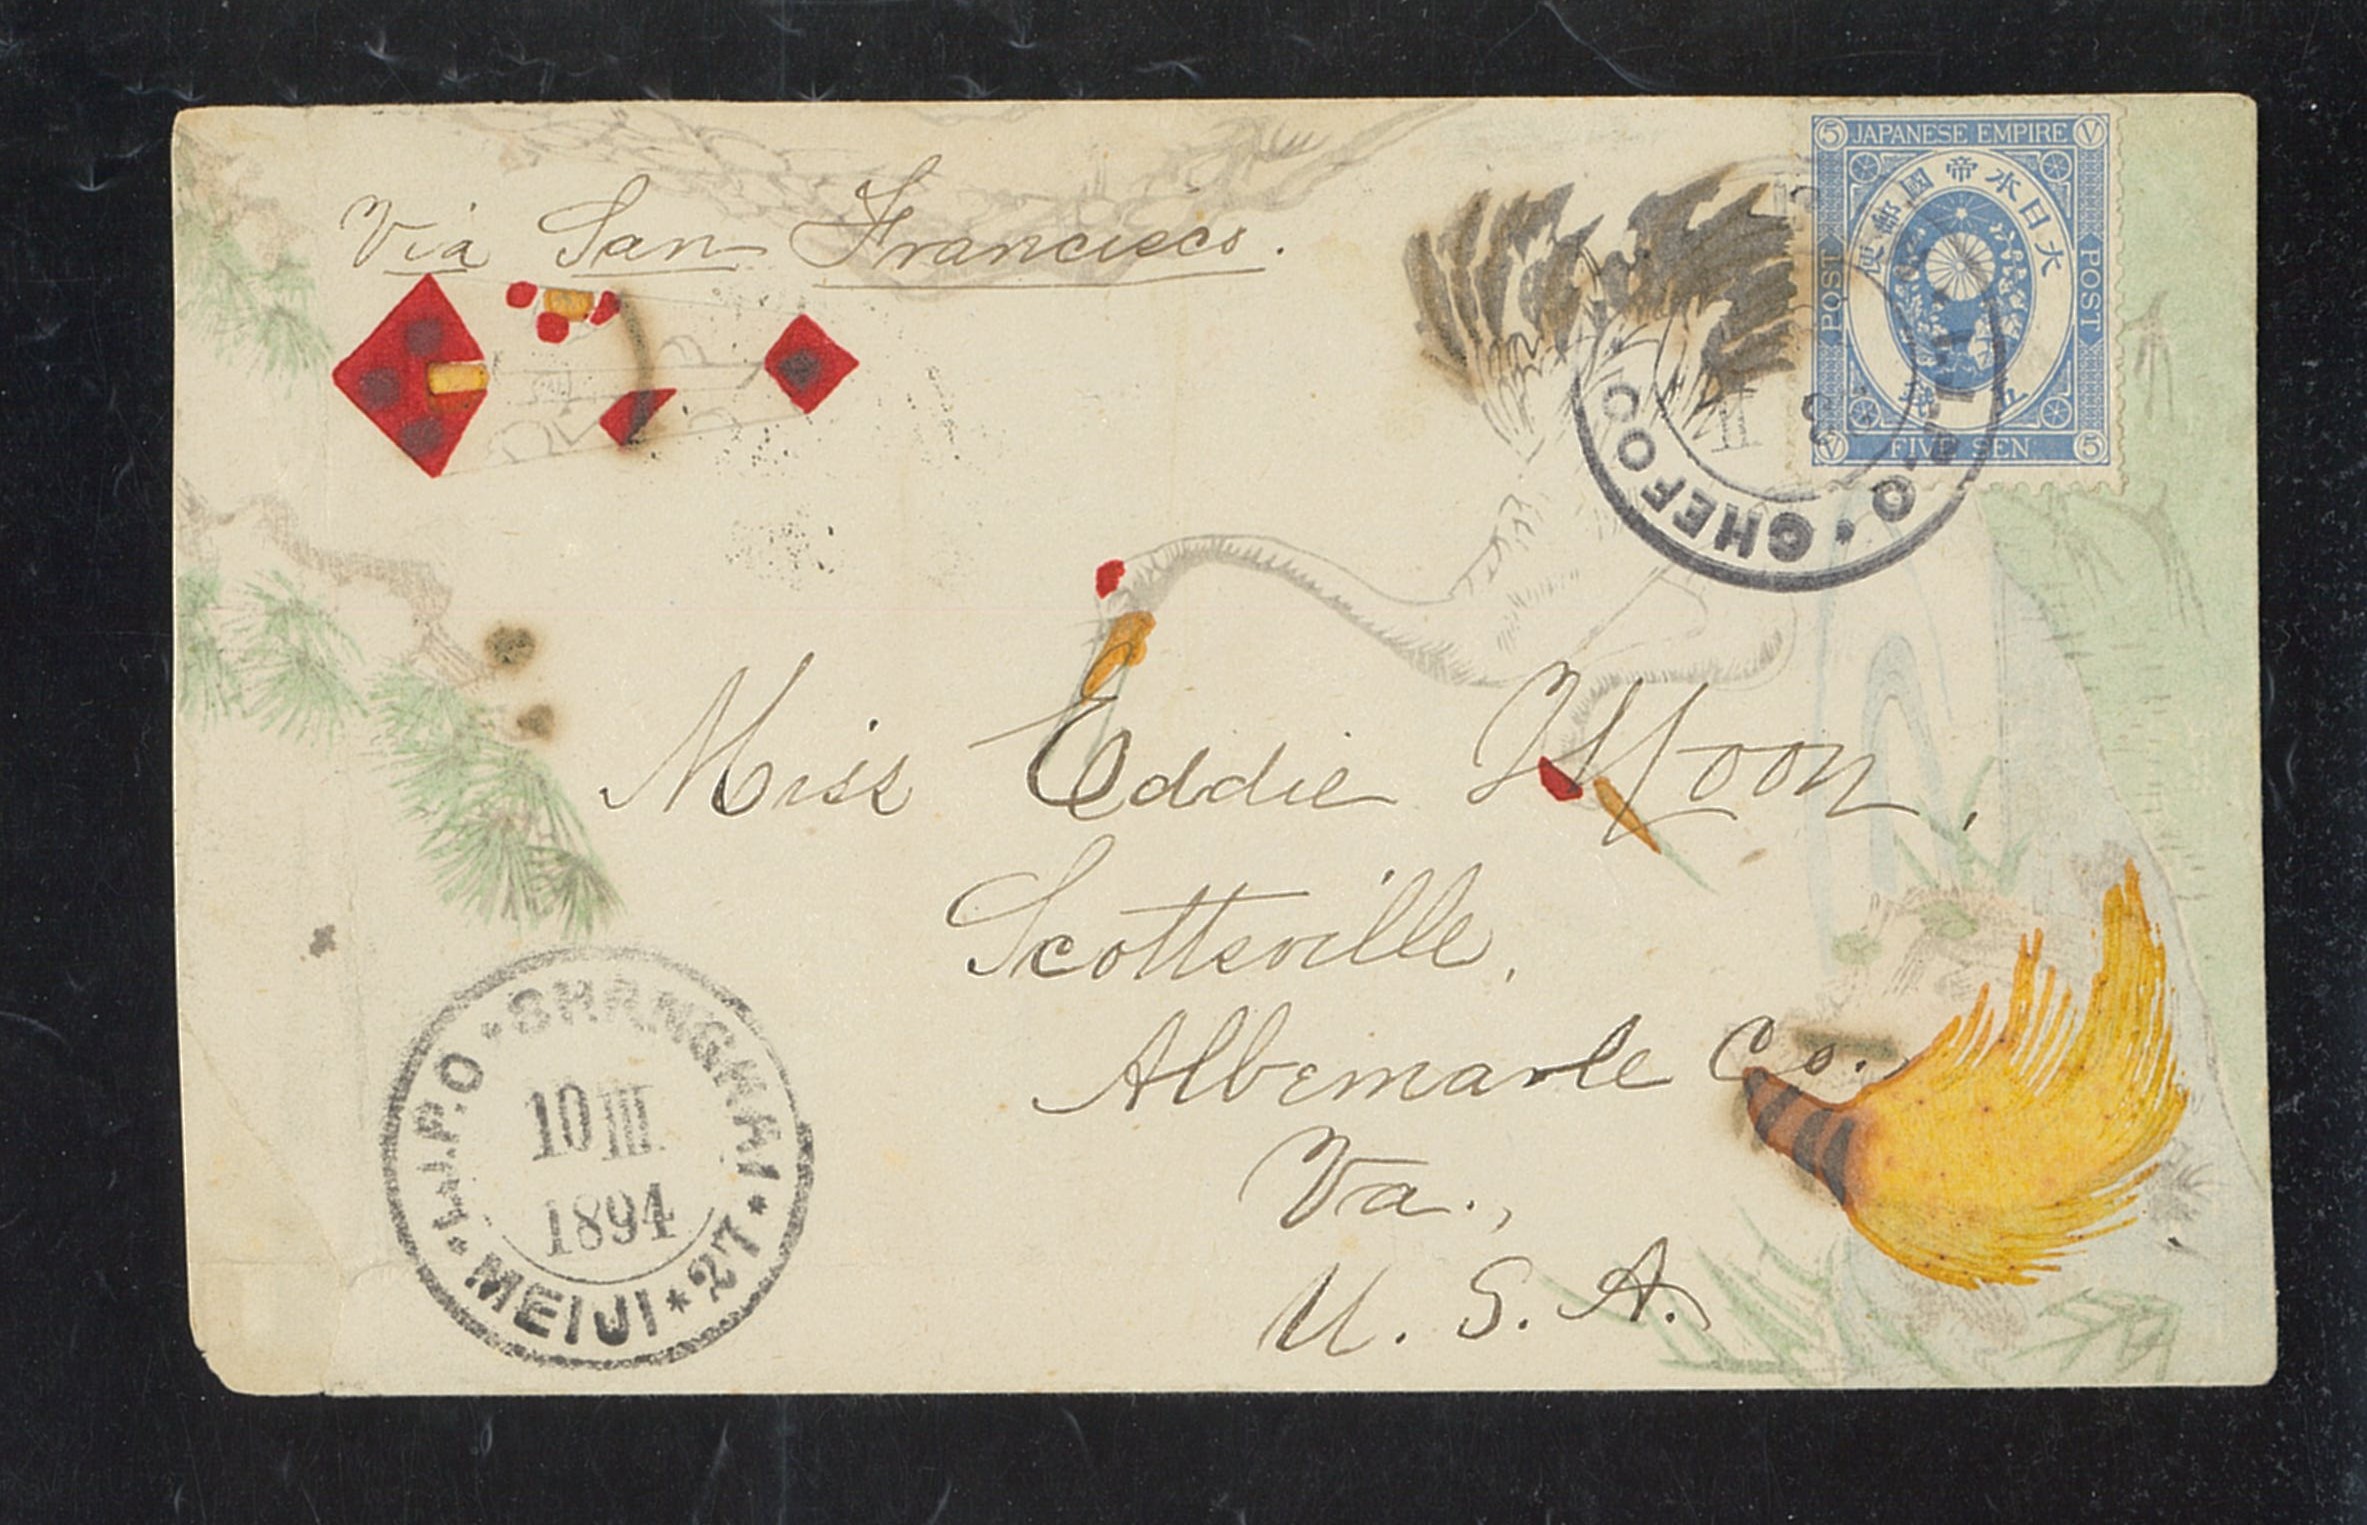 Via San Francisco.
5 JAPANESE EMPIRE V
大日本帝國郵便
POST
POST
V FIVE SEN 5
CHEFOO
Miss Eddie Moon,
Scottsville,
Albemarle Co.
Va.,
U. S. A.
I.J.P.O • SHANGHAI
10 III
1894
MEIJI * 27